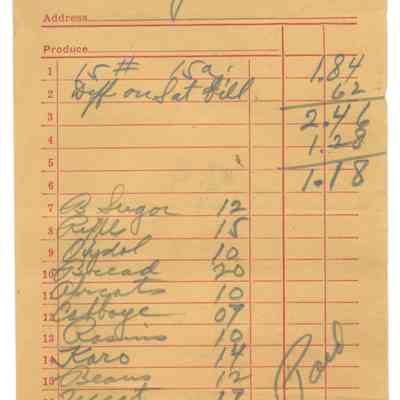 Address
Produce
1 15 # 15a; 1.84
2 Diff on Sat Bill 62
3 2.46
4 1.28
5
6 1.18
7 B Sugar 12
8 15
9 Oxydol 10
10 Bread 20
11 10
12 Cabbage 07
13 Raisins 10
14 Karo 14
15 Beans 12
Meat 17
Paid